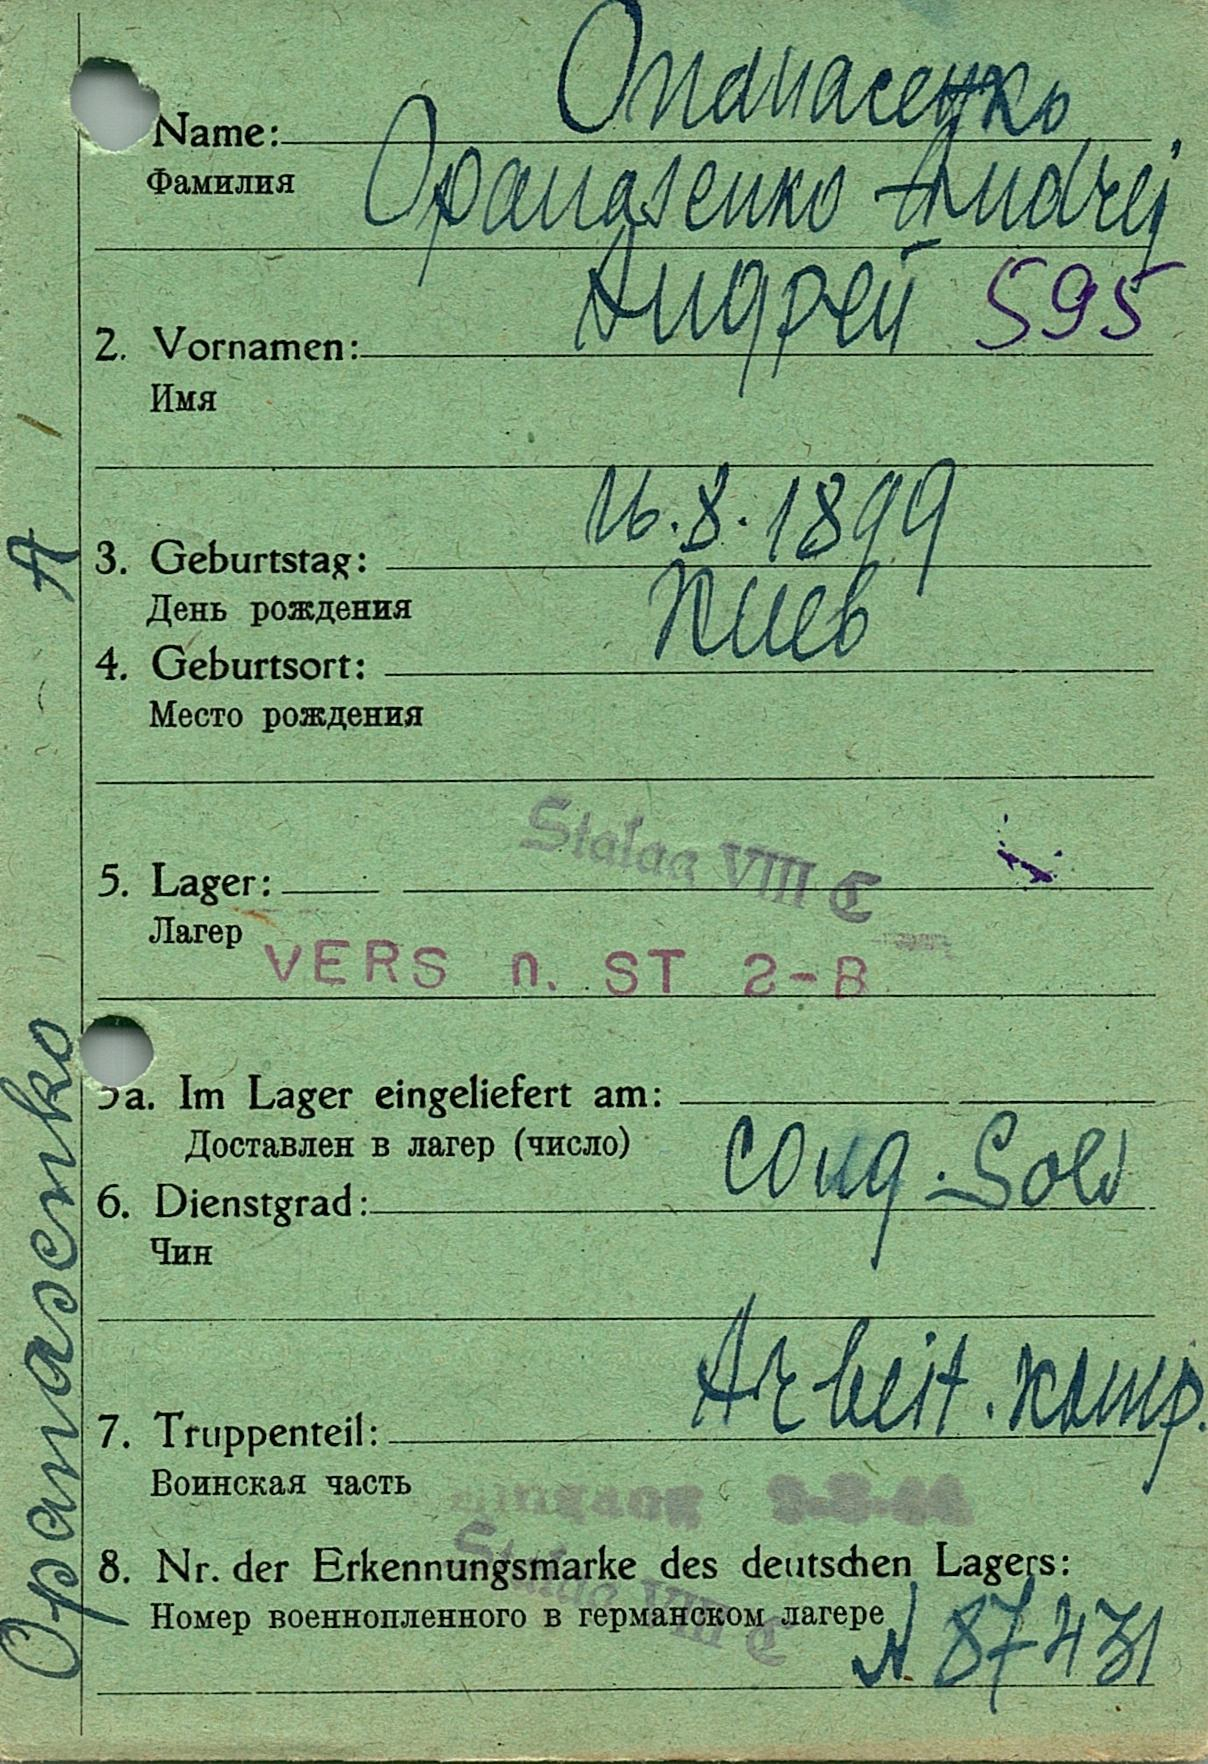 Опанасенко
Name:
Фамилия
Opanasenko Andrej
Андрей 595
2. Vornamen:
Имя
16.8.1899
3. Geburtstag:
День рождения
Киев
4. Geburtsort:
Место рождения
Stalag VIII C
5. Lager:
Лагер
VERS n. ST 2-B
5a. Im Lager eingeliefert am:
Доставлен в лагер (число)
Sold
6. Dienstgrad:
Чин
Arbeit. Komp.
7. Truppenteil:
Воинская часть
Eingang
8. Nr. der Erkennungsmarke des deutschen Lagers:
Stalag VIII C
Номер военнопленного в германском лагере
N 87431
Opanasenko A